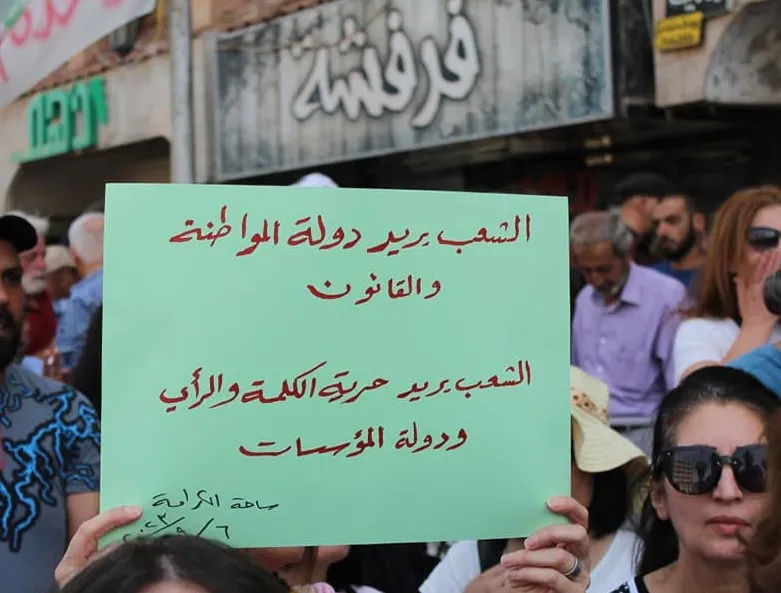 فرفشة
الشعب يريد دولة المواطنة
والقانون
الشعب يريد حرية الكلمة والرأي
ودولة المؤسسات
ساحة الكرامة
٢٠٢٣/٩/٦